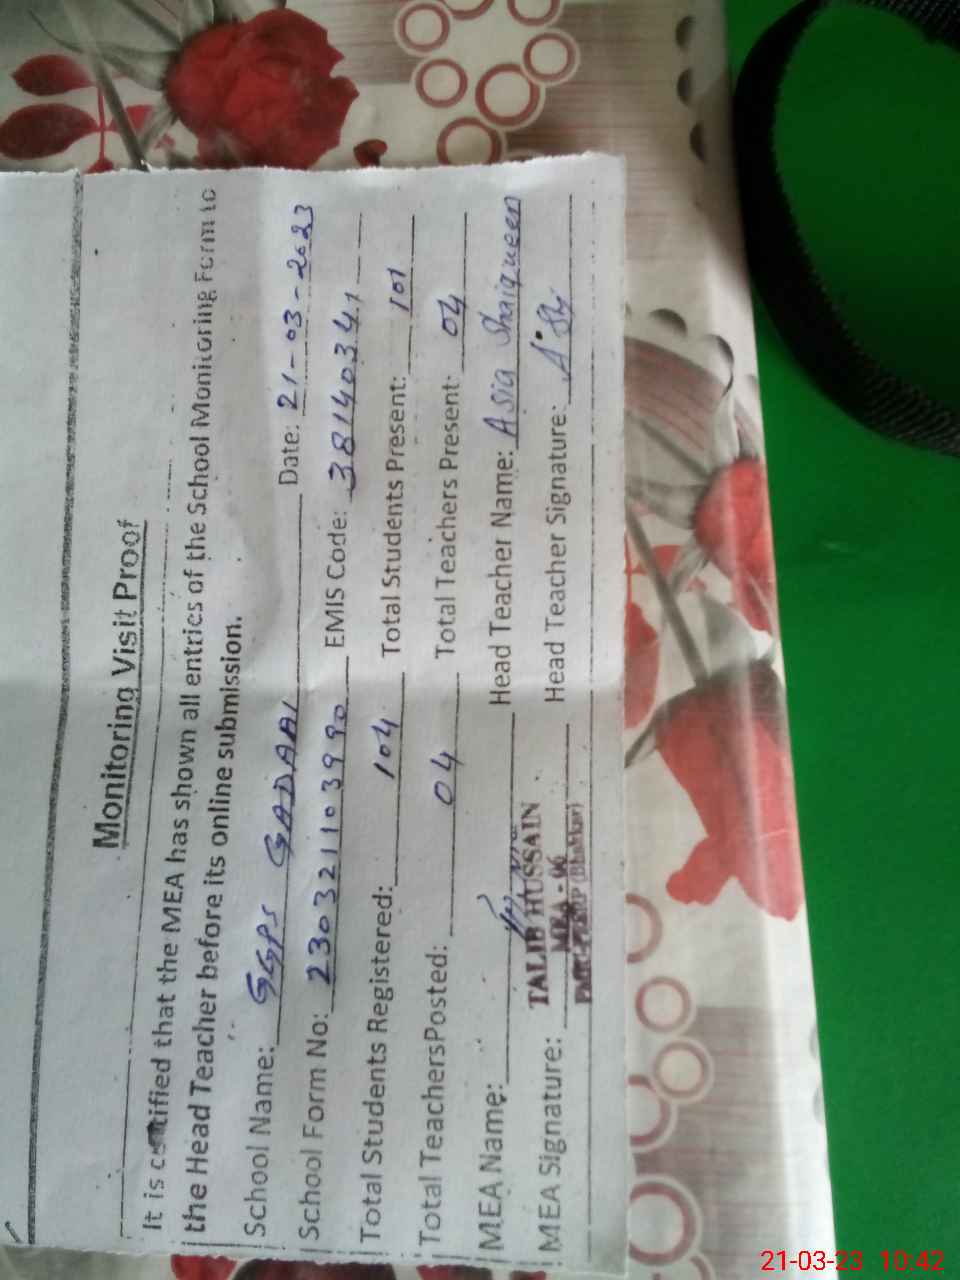 Monitoring Visit Proof
It is certified that the MEA has shown all entries of the School Monitoring Form to
the Head Teacher before its online submission.
School Name: GGPS GADAAI Date: 21-03-2023
School Form No: 230321103990 EMIS Code: 38140341
Total Students Registered: 104 Total Students Present: 101
Total TeachersPosted: 04 Total Teachers Present: 04
MEA Name: Head Teacher Name: Asia Shaiqueen
TALIB HUSSAIN
MEA - 06
(Bhakkar)
MEA Signature: Head Teacher Signature:
21-03-23 10:42